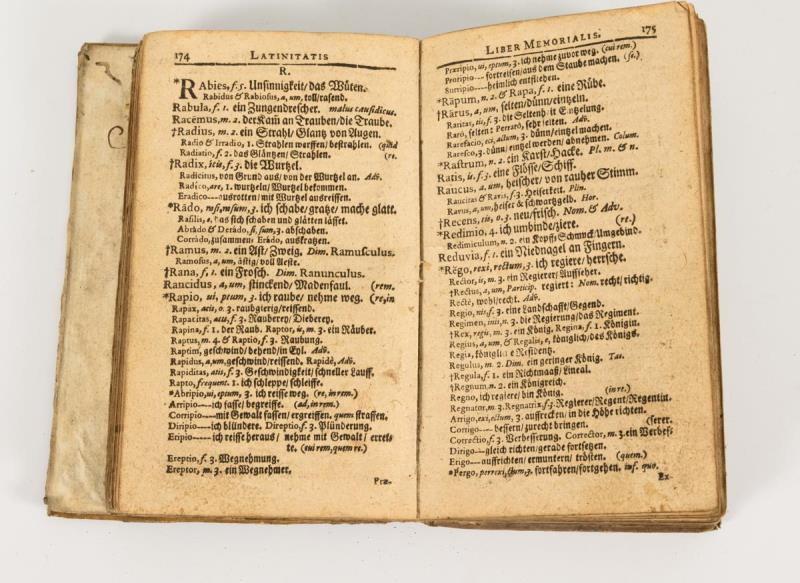 174 LATINITATIS
R.
*RAbies, f. 5. Unsinnigkeit/das Wüten.
Rabidus & Rabiosus, a, um, toll/rasend.
Rabula, f. 1. ein Zungendrescher. malus causidicus.
Racemus, m. 2. der Kam an Trauben/die Traube.
†Radius, m. 2. ein Strahl/Glantz von Augen.
Radio & Irradio, 1. Strahlen werffen/bestrahlen. (quid
Radiatio, f. 2. das Gläntzen/Strahlen. (re.
†Radix, icis, f. 3. die Wurtzel.
Radicitus, von Grund aus/von der Wurtzel an. Adv.
Radico, are, 1. wurtzeln/Wurtzel bekommen.
Eradico---ausrotten/mit Wurtzel ausreissen.
*Rādo, rasi, rasum, 3. ich schabe/gratze/mache glatt.
Rasilis, e, das sich schaben und glätten lässet.
Abrādo & Derādo, si, sum, 3. abschaben.
Corrādo, zusammen: Erādo, auskratzen.
†Ramus, m. 2. ein Ast/Zweig. Dim. Ramusculus.
Ramosus, a, um, ästig/voll Aeste.
†Rana, f. 1. ein Frosch. Dim. Ranunculus.
Rancidus, a, um, stinckend/Madenfaul. (rem.
*Rapio, ui, ptum, 3. ich raube/nehme weg. (re, in
Rapax, acis, o. 3. raubgierig/reissend.
Rapacitas, atis, f. 3. Rauberey/Dieberey.
Rapina, f. 1. der Raub. Raptor, is, m. 3. ein Räuber.
Raptus, m. 4. & Raptio, f. 3. Raubung.
Raptim, geschwind/behend/in Eyl. Adv.
Rapidus, a, um, geschwind/reissend. Rapidè, Adv.
Rapiditas, atis, f. 3. Geschwindigkeit/schneller Lauff.
Rapto, frequent. 1. ich schleppe/schleiffe.
*Abripio, ui, eptum, 3. ich reisse weg. (re, in rem.)
Arripio---ich fasse/begreiffe. (ad, in rem.)
Corripio---mit Gewalt fassen/ergreiffen. quem straffen.
Diripio---ich blündere. Direptio, f. 3. Plünderung.
Eripio---ich reisse heraus/nehme mit Gewalt/erret-
te. (cui rem, quem re.)
Ereptio, f. 3. Wegnehmung.
Ereptor, m. 3. ein Wegnehmer.
Præ-
LIBER MEMORIALIS. 175
Præripio, ui, eptum, 3. ich nehme zuvor weg. (cui rem.)
Proripio---fortreisen/aus dem Staube machen. (se.)
Surripio---heimlich entfliehen.
*Rāpum, n. 2. & Rapa, f. 1. eine Rübe.
†Rārus, a, um, selten/dünn/eintzeln.
Raritas, tis, f. 3. die Seltenheit Entzelung.
Rarò, selten: Perrarò, sehr selten. Adv.
Rarefacio, eci, actum, 3. dünn/eintzel machen.
Rarefco, 3. dünn/eintzel werden/abnehmen. Colum.
*Rastrum, n. 2. ein Karst/Hacke. Pl. m. & n.
Ratis, is, f. 3. eine Flösse/Schiff.
Raucus, a, um, heischer/von rauher Stimm.
Raucitas & Ravis, f. 3. Heiserkeit. Plin.
Ravus, a, um, heiser & schwartzgelb. Hor.
†Recens, tis, o. 3. neu/frisch. Nom. & Adv.
*Redimio, 4. ich umbinde/ziere. (re.)
Redimiculum, n. 2. ein Kopff-Schmuck/Umgebind.
Reduvia, f. 1. ein Niednagel an Fingern.
*Rĕgo, rexi, rectum, 3. ich regiere/herrsche.
Rector, is, m. 3. ein Regierer/Auffseher.
†Rectus, a, um, Particip. regiert: Nom. recht/richtig.
Rectè, wohl/recht. Adv.
Regio, nis, f. 3. eine Landschafft/Gegend.
Regimen, inis, n. 3. die Regierung/das Regiment.
†Rex, regis, m. 3. ein König. Regina, f. 1. Königin.
Regius, a, um, & Regalis, e, königlich/das Königs.
Regia, königliche Residentz.
Regulus, m. 2. Dim. ein geringer König. Tac.
†Regula, f. 1. ein Richtmaaß/Lineal.
†Regnum, n. 2. ein Königreich.
Regno, ich regiere/bin König. (in re.)
Regnator, m. 3. Regnatrix, f. 3. Regierer/Regent/Regentin.
Arrigo, exi, ectum, 3. auffrecken/in die Höhe richten.
Corrigo---bessern/zurecht bringen. (serer.
Correctio, f. 3. Verbesserung. Corrector, m. 3. ein Verbes-
Dirigo---gleich richten/gerade fortsetzen.
Erigo---auffrichten/ermuntern/trösten. (quem.)
*Pergo, perrexi, ctum, 3. fortfahren/fortgehen. inf. quo.
Ex-